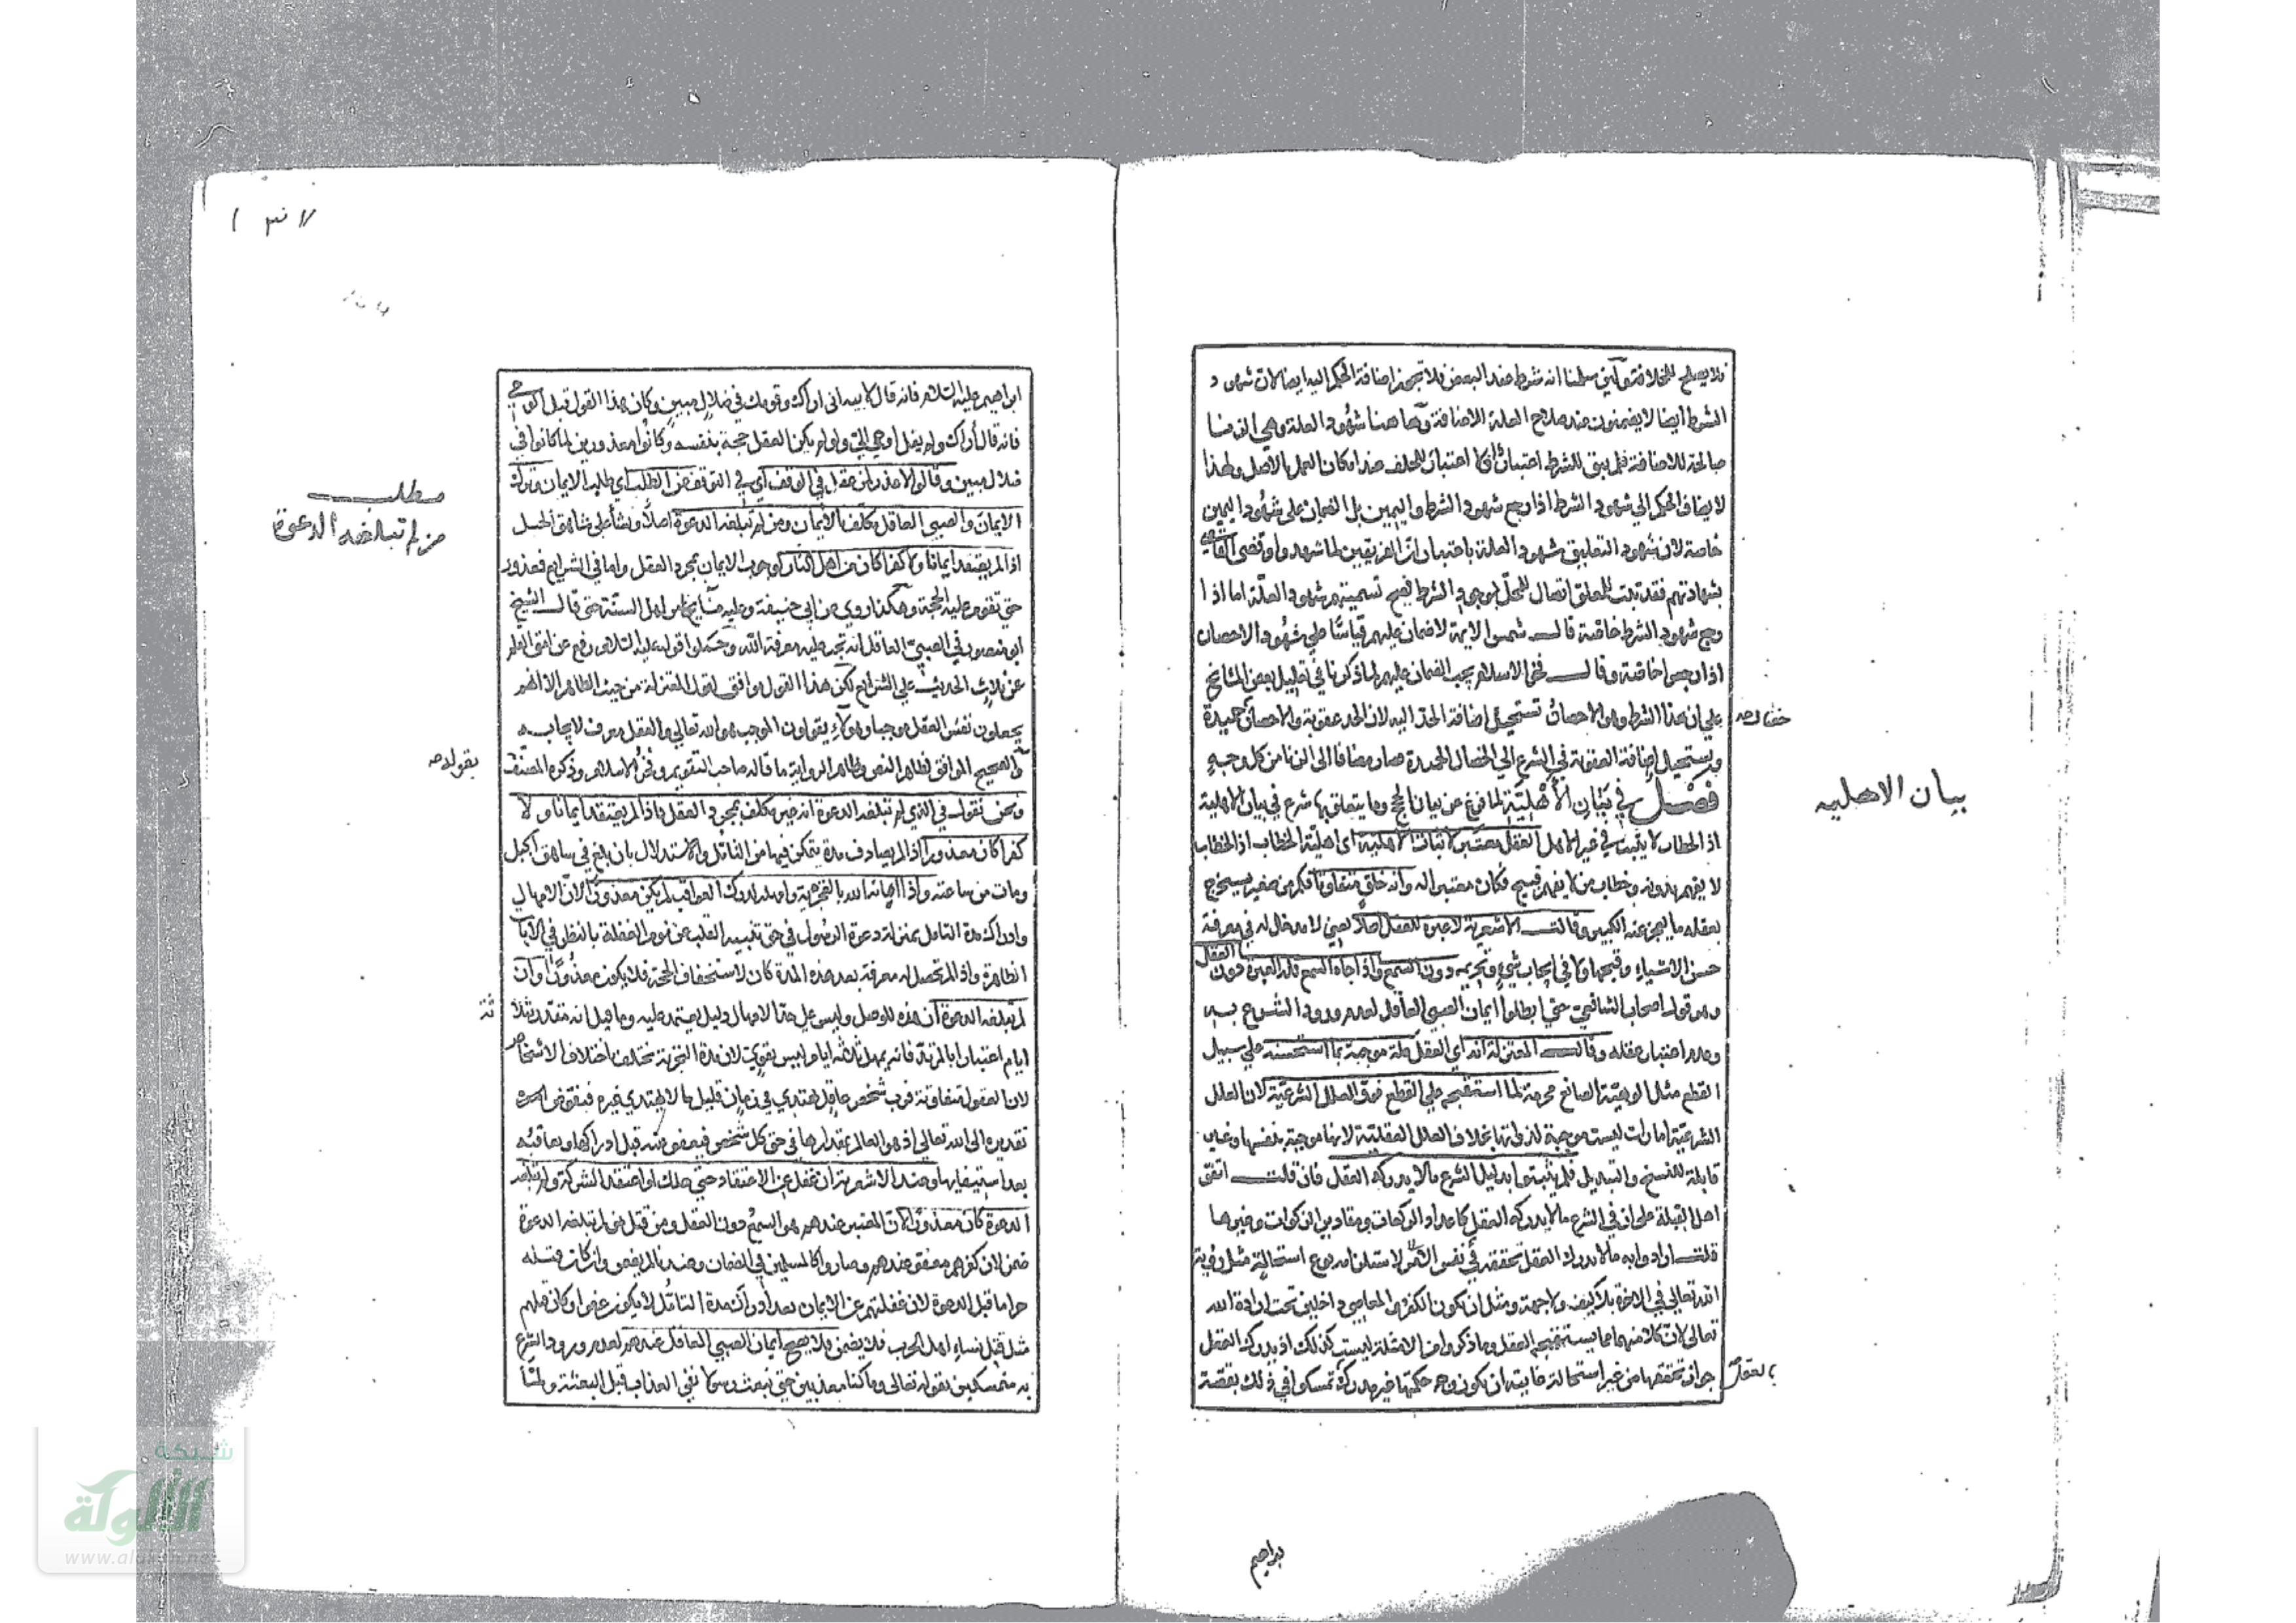 فلا يصلح للخلافة ولئن سلمنا انه شرط عند البعض فلا تجوز اضافة الحكم اليه ايضا لان شهود
الشرط ايضا لا يضمنون عند صلاح العلة للاضافة وهاهنا شهود العلة وهي الزنا
صالحة للاضافة فلم يبق للشرط اعتبار اذ لا اعتبار للخلف عند امكان العمل بالاصل ولهذا
لا يضاف الحكم الي شهود الشرط اذا رجع شهود الشرط واليمين بل الضمان علي شهود اليمين
خاصة لان شهود التعليق شهود العلة باعتبار ان الفريقين لما شهدوا وقضي القاضي
بشهادتهم فقد ثبت للمعلق اتصال بالمحل لوجود الشرط فصح تسميتهم شهود العلة اما اذا
رجع شهود الشرط خاصة قال شمس الايمة لا ضمان عليهم قياسا علي شهود الاحصان
اذا رجعوا خاصة وقال فخر الاسلام يجب الضمان عليهم لما ذكرنا في تعليل بعض المشايخ
علي ان هذا الشرط وهو الاحصان تستحيل اضافة الحد اليه لان الحد عقوبة والاحصان حميدة
خصال
ويستحيل اضافة العقوبة في الشرع الي الخصال الحميدة فصار مضافا الى الزنا من كل وجه
فصل في بيان الأهلية لما فرغ عن بيان الحجج وما يتعلق بها شرع في بيان الاهلية
بيان الاهليه
اذ الخطاب لا يثبت في غير الاهل العقل معتبر لاثبات الاهلية اي اهلية الخطاب اذ الخطاب
لا يفهم بدونه وخطاب من لا يفهم قبيح فكان معتبرا له وانه خلق متفاوتا فكم من صغير يستخرج
بعقله ما يعجز عنه الكبير وقالت الاشعرية لا عبرة للعقل اصلا يعني لا مدخل له في معرفة
حسن الاشياء وقبحها ولا في ايجاب شيء وتحريمه دون السمع واذا جاء السمع فله العبرة دون العقل
وهو قول اصحاب الشافعي حتي ابطلوا ايمان الصبي العاقل لعدم ورود الشرع به
وعدم اعتبار عقله وقالت المعتزلة انه اي العقل علة موجبة لما استحسنه علي سبيل
القطع مثل الوهية الصانع محرمة لما استقبحه علي القطع فوق العلل الشرعية لان العلل
الشرعية امارات ليست موجبة لذواتها بخلاف العلل العقلية لانها موجبة بنفسها وغير
قابلة للنسخ والتبديل فلم يثبتوا بدليل الشرع ما لا يدركه العقل فان قلت اتفق
اهل القبلة علي ان في الشرع ما لا يدركه العقل كاعداد الركعات ومقادير الزكوات وغيرها
قلت ارادوا به ما لا يدرك العقل تحققه في نفس الامر لاستلزامه نوع استحالة مثل رؤية
الله تعالى في الاخرة بلا كيف ولا جهة ومثل ان يكون الكفر والمعاصي داخلين تحت ارادة الله
تعالى لان كلا منهما مما يستقبحه العقل وما ذكروا من الامثلة ليست كذلك اذ يدرك العقل
جواز تحققها من غير استحالة غايته ان يكون وجه حكمتها غير مدرك تمسكوا في ذلك بقصة
بالعقل
براهيم
ابراهيم عليه السلام فانه قال لابيه اني اراك وقومك في ضلال مبين وكان هذا القول قبل الوحي
فانه قال أراك ولم يقل اوحي الي ولو لم يكن العقل حجة بنفسه وكانوا معذورين لما كانوا في
ضلال مبين وقالوا لا عذر لمن عقل في الوقف اي في التوقف عن الطلب اي طلب الايمان وترك
مطلب
من لم تبلغه الدعوة
الايمان والصبي العاقل مكلف بالايمان ومن لم تبلغه الدعوة اصلا ونشأ علي شاهق الجبل
اذا لم يعتقد ايمانا ولا كفرا كان من اهل النار لوجوب الايمان بمجرد العقل واما في الشرايع فمعذور
حتي تقوم عليه الحجة وهكذا روي عن ابي حنيفة وعليه مشايخنا من اهل السنة حتي قال الشيخ
ابو منصور في الصبي العاقل انه تجب عليه معرفة الله وحملوا قوله عليه السلام رفع عن القلم
عن ثلاث الحديث علي الشرايع لكن هذا القول موافق لقول المعتزلة من حيث الظاهر الا انهم
يجعلون نفس العقل موجبا وهؤلاء يقولون الموجب هو الله تعالي والعقل معرف لايجابه
والصحيح الموافق لظاهر النص وظاهر الرواية ما قاله صاحب التقويم وفخر الاسلام وذكره المصنف
بقوله
ونحن نقول في الذي لم تبلغه الدعوة انه غير مكلف بمجرد العقل فاذا لم يعتقد ايمانا ولا
كفرا كان معذورا اذا لم يصادف مدة يتمكن فيها من التأمل والاستدلال بان بلغ في شاهق الجبل
ومات من ساعته واذا اعانه الله بالتجربة وامهله لدرك العواقب لم يكن معذورا لان الامهال
وادراك مدة التأمل بمنزلة دعوة الرسول في حق تنبيه القلب عن نوم الغفلة بالنظر في الآيات
الظاهرة واذا لم تحصل له معرفة بعد هذه المدة كان لاستخفاف الحجة فلا يكون معذورا وان
لم تبلغه الدعوة وليس علي حد الامهال دليل يعتمد عليه وما قيل انه مقدر بثلاثة
ايام اعتبارا بالمرتد فانه يمهل ثلاثة ايام ليس بقوي لان مدة التجربة تختلف باختلاف الاشخاص
لان العقول متفاوتة فرب شخص عاقل يهتدي في زمان قليل ما لا يهتدي غيره فنفوض
تقديره الى الله تعالي اذ هو العالم بمقدارها في حق كل شخص فيعفو عنه قبل ادراكها ويعاقبه
بعد استيفايها وعند الاشعرية ان غفل عن الاعتقاد حتي هلك او اعتقد الشرك ولم تبلغه
الدعوة كان معذورا لان المعتبر عندهم هو السمع دون العقل ومن قتل من لم تبلغه الدعوة
ضمن لان كفرهم معفو عندهم وصاروا كالمسلمين في الضمان وعندنا لم يضمن وان كان قتله
حراما قبل الدعوة لان غفلتهم عن الايمان بعد ادراك مدة التأمل لا يكون عفوا وكان قتلهم
مثل قتل نساء اهل الحرب فلا يضمن ولا يصح ايمان الصبي العاقل عندهم لعدم ورود الشرع
به متمسكين بقوله تعالى وما كنا معذبين حتي نبعث رسولا نفي العذاب قبل البعثة ولما
شبكة
الألوكة
www.alukah.net